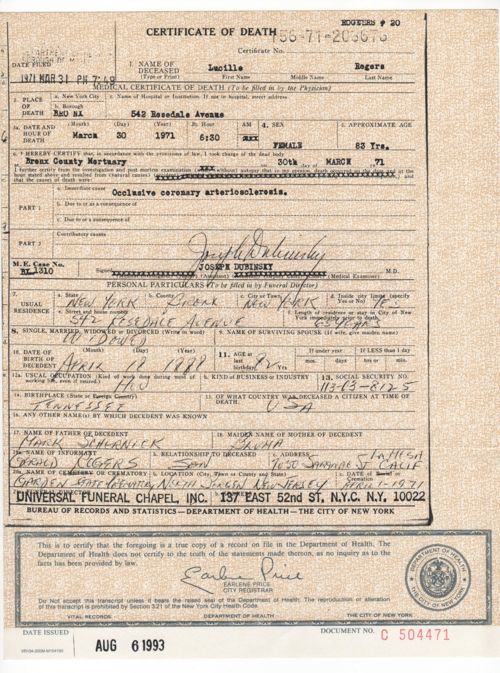 ROGERS # 20
CERTIFICATE OF DEATH 156-71-203676
DATE FILED
Certificate No.
1971 MAR 31 PM 7:49
1. NAME OF DECEASED (Type or Print)
Lucille Rogers
First Name Middle Name Last Name
MEDICAL CERTIFICATE OF DEATH (To be filled in by the Physician)
2. PLACE OF DEATH
a. New York City
b. Borough
BRONX
c. Name of Hospital or Institution. If not in hospital, street address.
542 Rosedale Avenue
3a. DATE AND HOUR OF DEATH
(Month) (Day) (Year) 3b. Hour AM 4. SEX 5. APPROXIMATE AGE
March 30 1971 6:30 FEMALE 83 Yrs.
6. I HEREBY CERTIFY that, in accordance with the provisions of law, I took charge of the dead body
Bronx County Mortuary 30th day of MARCH 71
I further certify from the investigation and post mortem examination without autopsy that in my opinion, death occurred on the date and at the
hour stated above and resulted from (natural causes) and
that the causes of death were:
PART 1
a. Immediate cause
Occlusive coronary arteriosclerosis.
b. Due to or as a consequence of
c. Due to or as a consequence of
PART 2
Contributory causes
Joseph Dubinsky
M.E. Case No.
BX 1310
Signed JOSEPH DUBINSKY M.D.
(Assistant) (Medical Examiner)
PERSONAL PARTICULARS (To be filled in by Funeral Director)
7. USUAL RESIDENCE
a. State b. County c. City or Town d. Inside city limits (specify Yes or No)
NEW YORK BRONX NEW YORK YES
e. Street and house number
542 ROSEDALE AVENUE
f. Length of residence or stay in City of New York immediately prior to death
65 YEARS
8. SINGLE, MARRIED, WIDOWED or DIVORCED (Write in word)
WIDOWED
9. NAME OF SURVIVING SPOUSE (If wife, give maiden name)
10. DATE OF BIRTH OF DECEDENT
(Month) (Day) (Year)
APRIL 18 1888
11. AGE at last birthday 82 Yrs
If under year If LESS than 1 day
mos. days hrs. or min.
12a. USUAL OCCUPATION (Kind of work done during most of working life, even if retired)
H.W
b. KIND OF BUSINESS or INDUSTRY
13. SOCIAL SECURITY NO.
113-03-8125
14. BIRTHPLACE (State or Foreign Country)
TENNESSEE
15. OF WHAT COUNTRY WAS DECEASED A CITIZEN AT TIME OF DEATH.
USA
16. ANY OTHER NAME(s) BY WHICH DECEDENT WAS KNOWN
17. NAME OF FATHER OF DECEDENT
18. MAIDEN NAME OF MOTHER OF DECEDENT
MARK
19a. NAME OF INFORMANT b. RELATIONSHIP TO DECEASED c. ADDRESS
GERALD ROGERS SON LA MESA CALIF
20a. NAME OF CEMETERY OR CREMATORY b. LOCATION (City, Town or County and State) c. DATE OF
GARDEN STATE CREMATORY NORTH BERGEN NEW JERSEY APRIL 1-1971
UNIVERSAL FUNERAL CHAPEL, INC. 137 EAST 52nd ST, N.Y.C. N.Y. 10022
BUREAU OF RECORDS AND STATISTICS—DEPARTMENT OF HEALTH—THE CITY OF NEW YORK
This is to certify that the foregoing is a true copy of a record on file in the Department of Health. The
Department of Health does not certify to the truth of the statements made thereon, as no inquiry as to the
facts has been provided by law.
Earlene Price
EARLENE PRICE
CITY REGISTRAR
Do not accept this transcript unless it bears the raised seal of the Department of Health. The reproduction or alteration
of this transcript is prohibited by Section 3.21 of the New York City Health Code.
VITAL RECORDS DEPARTMENT OF HEALTH THE CITY OF NEW YORK
DEPARTMENT OF HEALTH
THE CITY OF NEW YORK
DATE ISSUED AUG 6 1993
DOCUMENT NO. C 504471